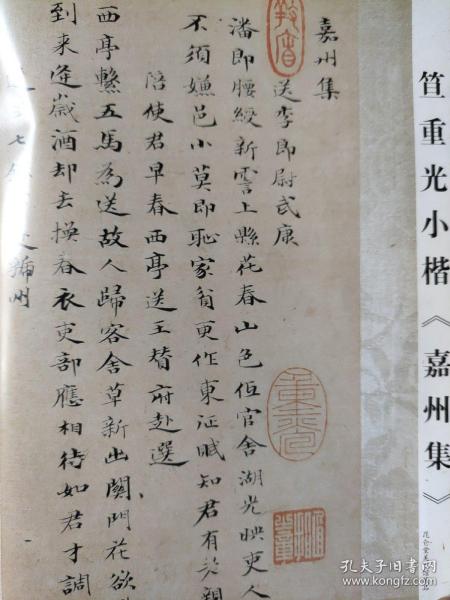 笪重光小楷《嘉州集》
嘉州集
送李郎尉武康
潘郎腰綬新霅上縣花春山色低官舍湖光映吏人
不須嫌邑小莫即恥家貧更作東征賦知君有老親
陪使君早春西亭送王賛府赴選
西亭繫五馬為送故人歸客舍草新出關門花欲
到来逢歲酒却去換春衣吏部應相待如君才調
孔夫子旧书网